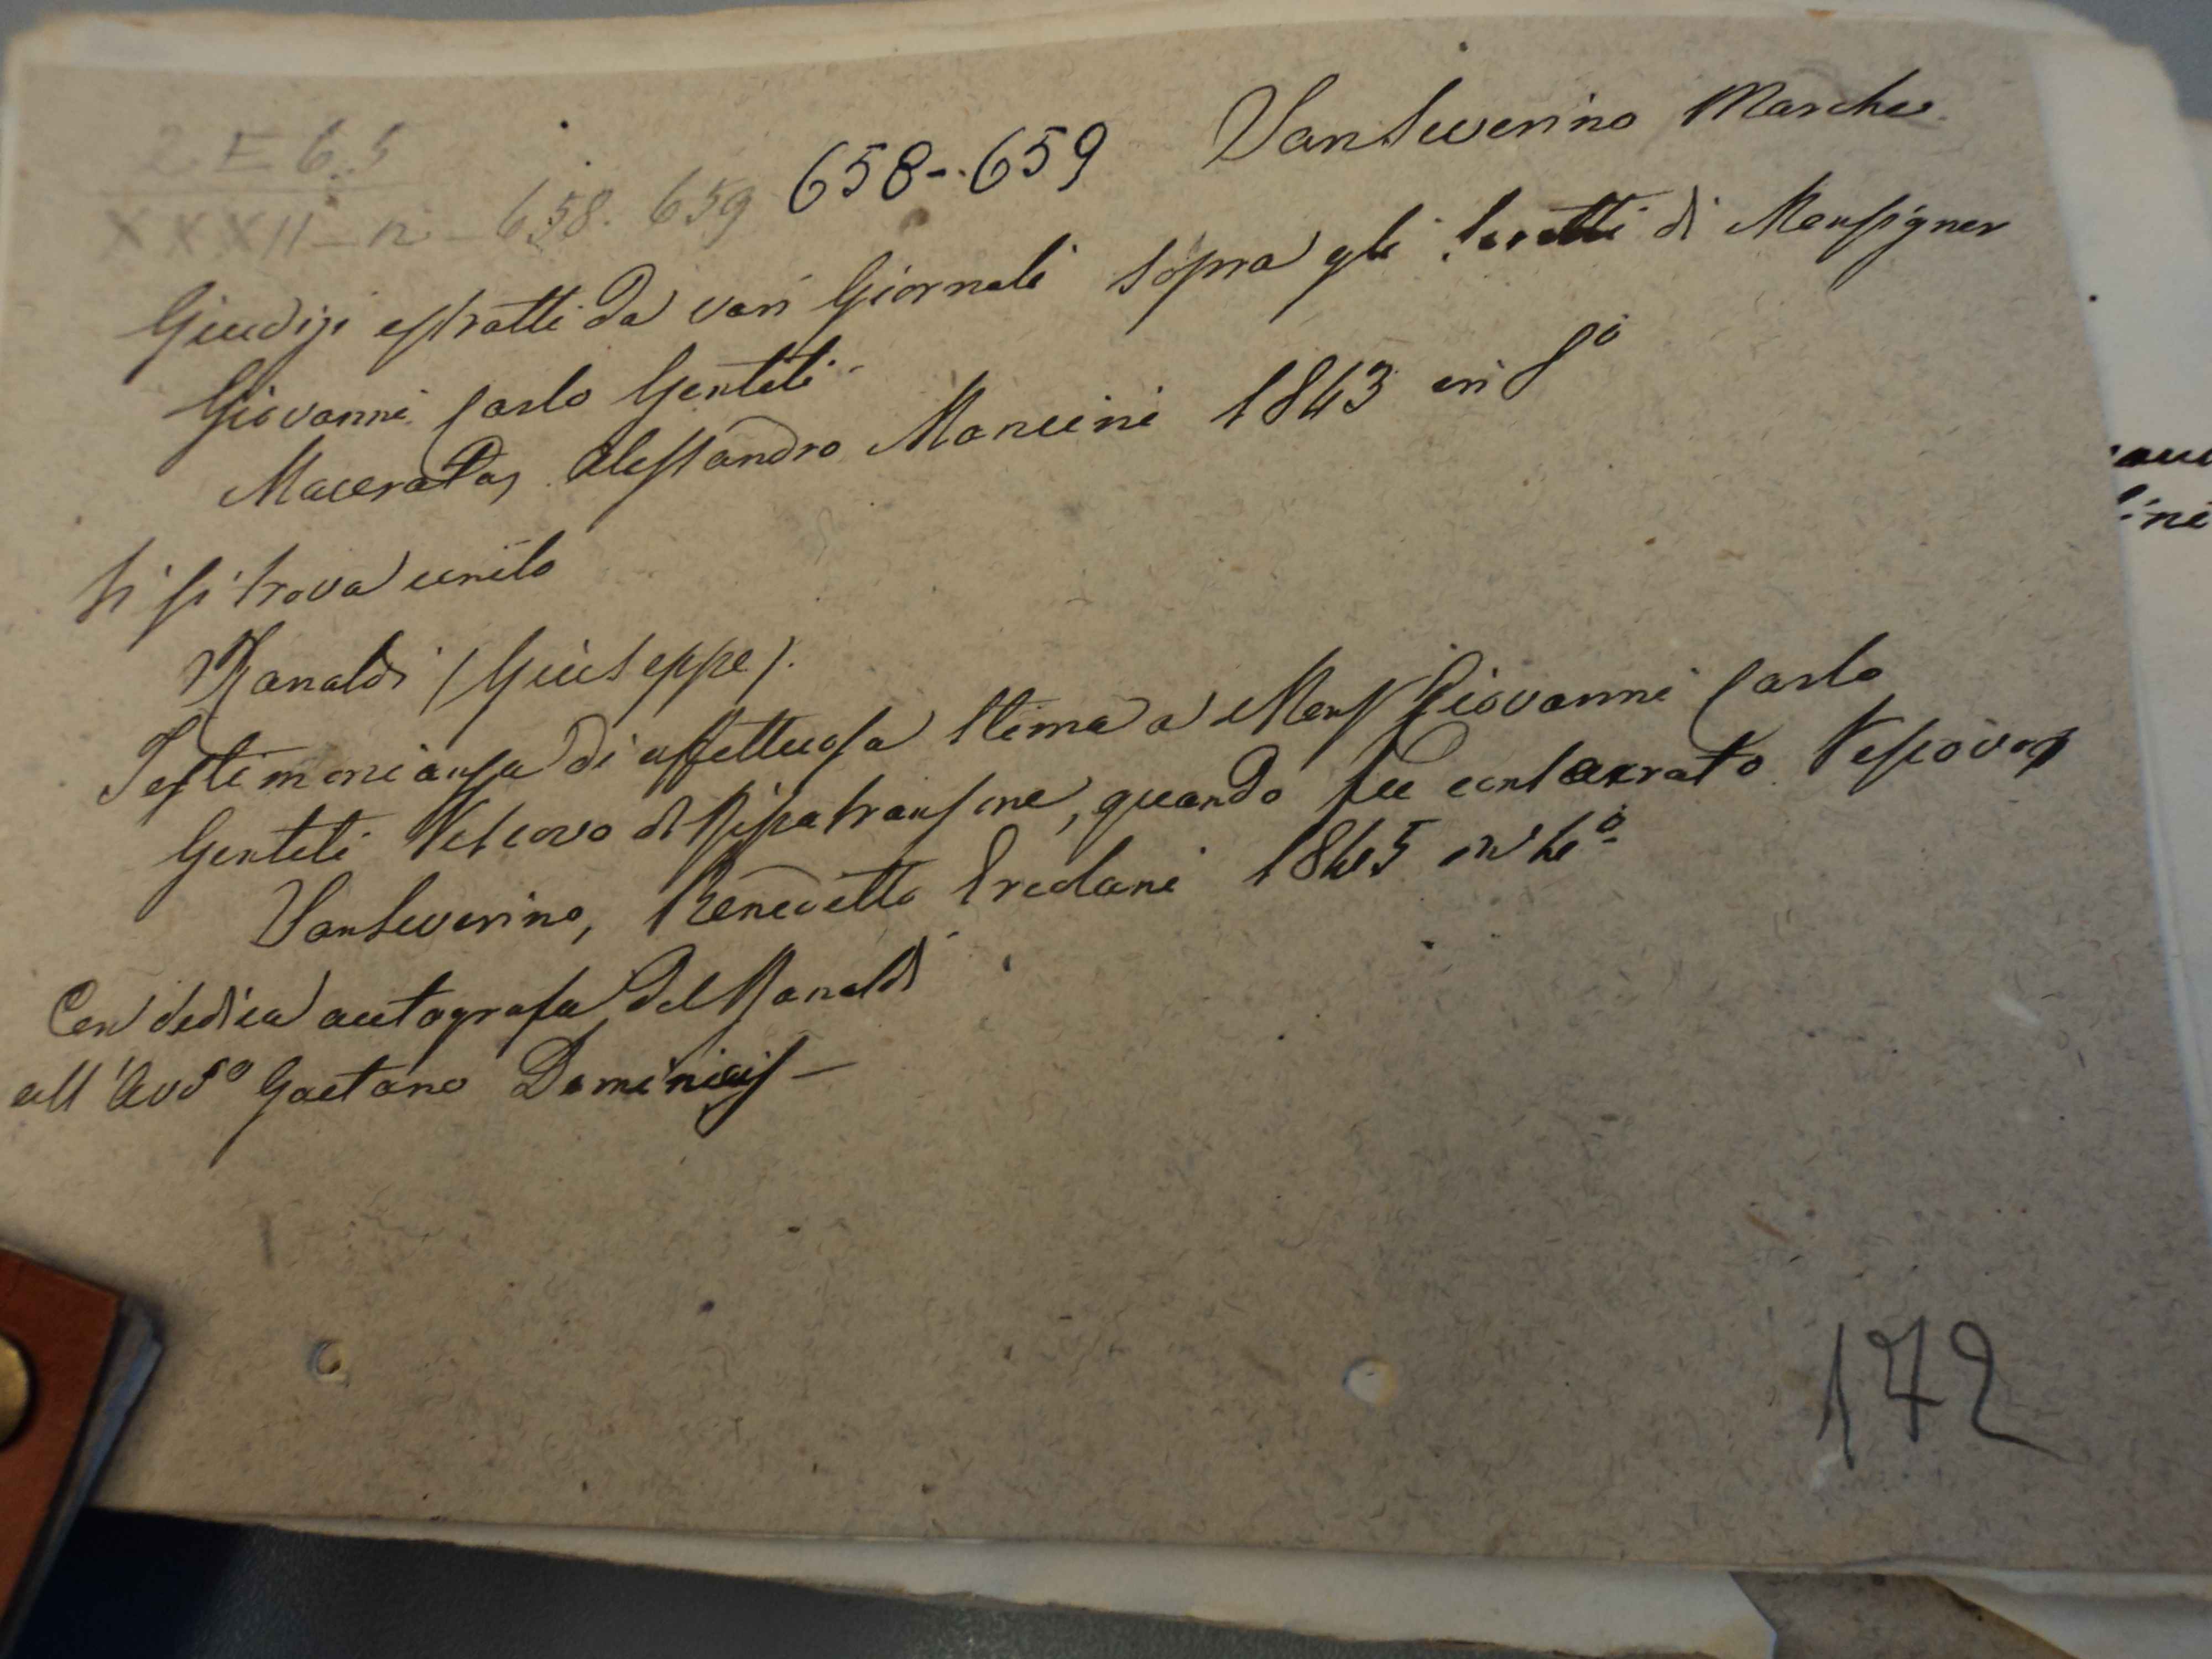 2 E 6.5
XXXII - n - 658. 659 658-.659 Sanseverino Marche
Giudizi estratti da vari Giornali sopra gli scritti di Monsignor
Giovanni Carlo Gentili
Macerata, Alessandro Mancini 1843 in 8°
Vi si trova unito
Ranaldi (Giuseppe).
Testimonianza di affettuosa stima a Mons Giovanni Carlo
Gentili Vescovo di Ripatransone, quando fu consacrato Vescovo
Sanseverino, Benedetto Ercolani 1845 in 4°
Con dedica autografa del Ranaldi
all'Avv° Gaetano Dominicis
172